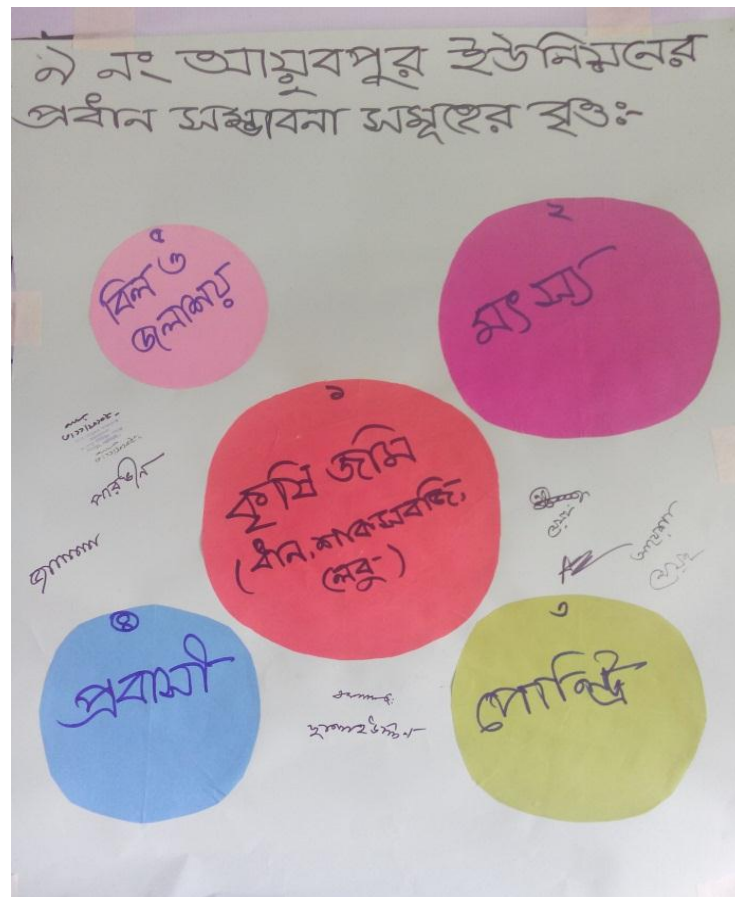 ৯ নং আয়ুবপুর ইউনিয়নের
প্রধান সম্ভাবনা সমূহের বৃত্তঃ-
৫
বিল ও
জলাশয়
২
মৎস্য
১
কৃষি জমি
(ধান, শাকসবজি,
লেবু)
পারভীন
৪
প্রবাসী
৩
পোল্ট্রি